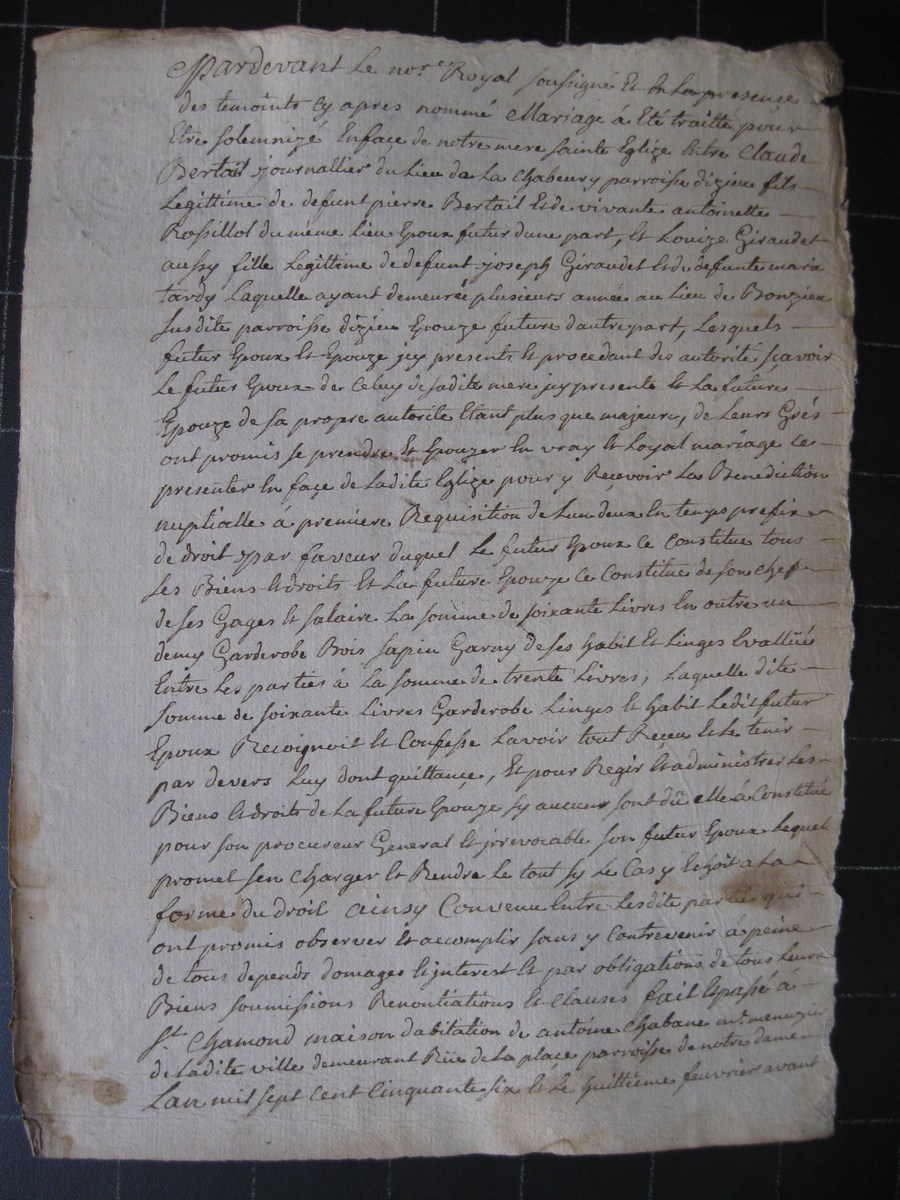 Pardevant Le nore Royal soussigné Et En La presence
des temoints Cy apres nommé Mariage á Eté traitté pour
Etre solemnizé Enface de notre mere sainte Eglize Entre Claude
Bertail journallier du Lieu de La Chabeury parroisse dizieu fils
Legittime de defunt pierre Bertail Et de vivante antoinette
Rossillol du meme Lieu Epoux futur dune part, Et Louize Giraudet
aussy fille Legittime de defunt joseph Giraudet Et de defunte marie
tardy Laquelle ayant demeurée plusieurs année au Lieu de Bonzieu
susdite parroisse dizieu Epouze future dautre part, Lesquels
futur Epoux Et Epouze jcy presents Et procedant des autorité scavoir
Le futur Epoux de Celuy de sadite mere jcy presente Et La future
Epouze de sa propre autorité Etant plus que majeure, de Leurs Grés
ont promis se prendre Et Epouzer En vray Et Loyal mariage Ce
presenter En façe de Ladite Eglize pour y Reçevoir La Benediction
nuptialle á premiere Requisition de Lun deux En temps prefix
de droit par faveur duquel Le futur Epoux Ce Constitue tous
ses Biens Et droits Et La future Epouze Ce Constitue de son Chef
de ses Gages Et salaire La somme de soixante Livres En outre un
demy Garderobe Bois sapin Garny de ses habit Et Linges Evallüé
Entre Les parties á La somme de trente Livres, Laquelle dite
somme de soixante Livres Garderobe Linges Et habit Ledit futur
Epoux Recoignoit Et Confesse Lavoir tout Receu Et Le tenir
par devers Luy dont quittançe, Et pour Regir Et administrer Les
Biens Et droits de La future Epouze sy aucuns sont dû elle á Constitué
pour son procureur General Et jrrevocable son futur Epoux Lequel
promet sen Charger Et Rendre Le tout sy Le Cas y Echoit a La
forme du droit ainsy Convenu Entre Lesdite parties qui
ont promis observer Et accomplir sans y Contrevenir á peine
de tous depends domages Et jnterest Et par obligations de tous Leurs
Biens soumissions Renontiations Et Clauses fait Et passé á
St. Chamond maison dabitation de antoine Chabane me. menuzier
de Ladite ville demeurant Rüe de La place parroisse de notre dame
Lan mil sept Cent Cinquante six Et Le huittieme feuvrier avant